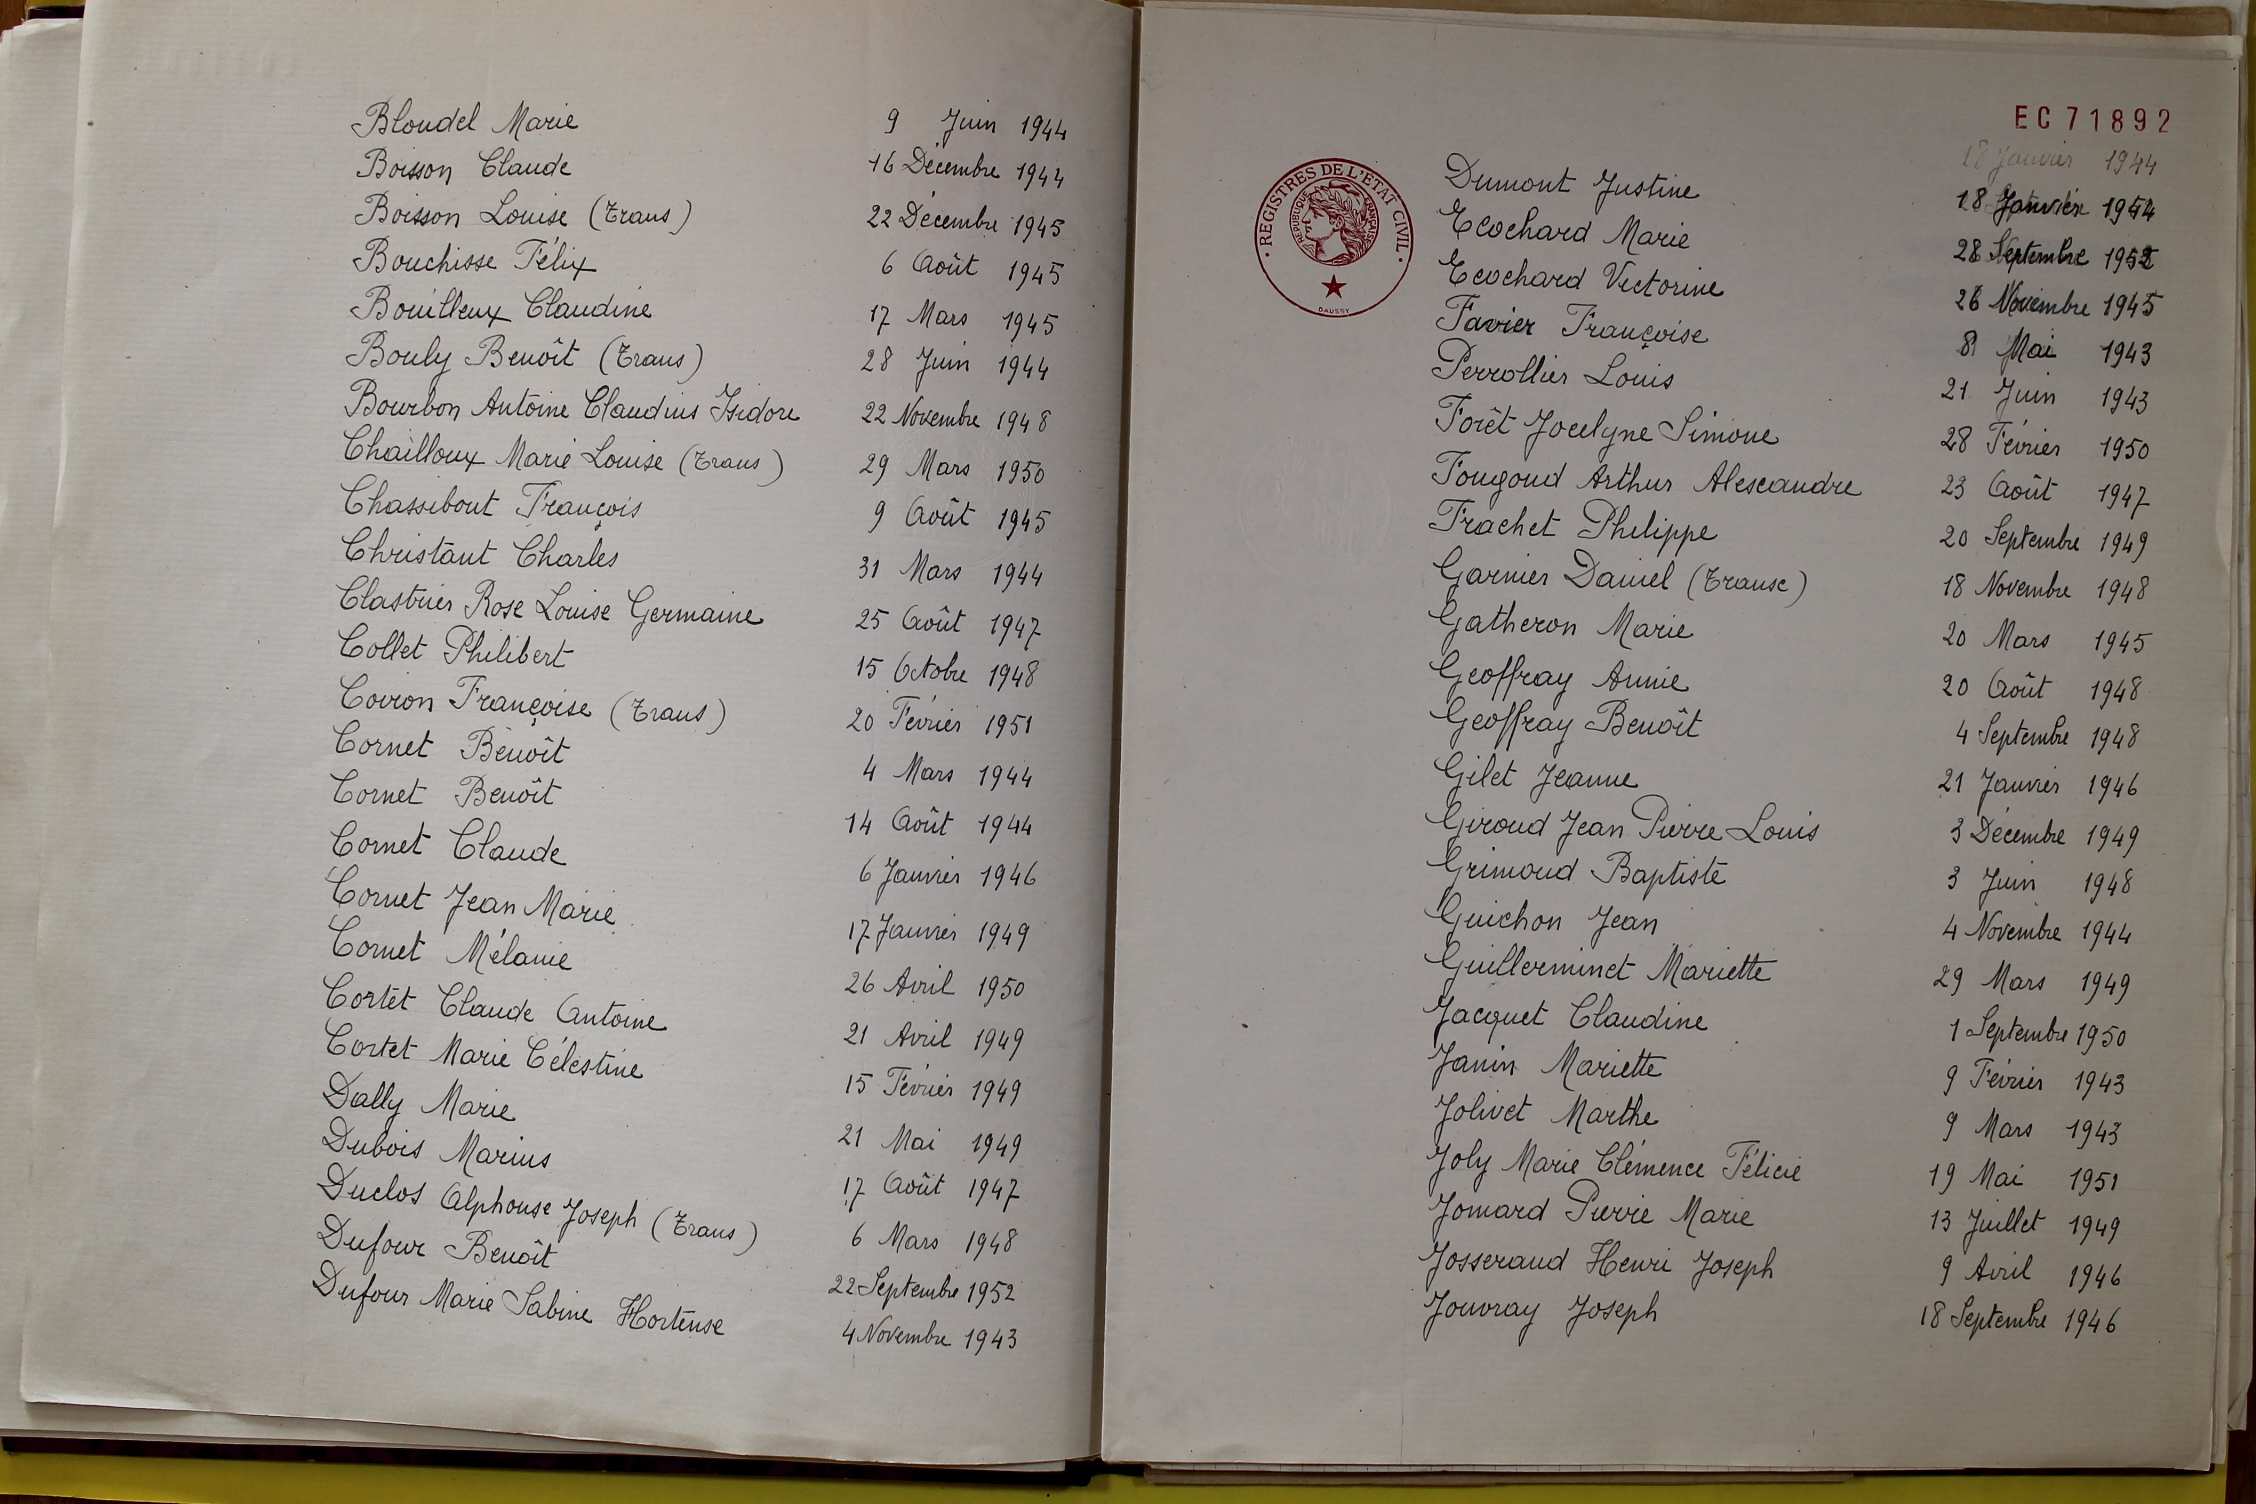 Bloudel Marie 9 Juin 1944
Boisson Claude 16 Décembre 1944
Boisson Louise (Trans) 22 Décembre 1945
Bouchisse Félix 6 Août 1945
Bouilleux Claudine 17 Mars 1945
Bouly Benoît (Trans) 28 Juin 1944
Bourbon Antoine Claudius Isidore 22 Novembre 1948
Chailloux Marie Louise (Trans) 29 Mars 1950
Chassibout François 9 Août 1945
Christant Charles 31 Mars 1944
Clastrier Rose Louise Germaine 25 Août 1947
Collet Philibert 15 Octobre 1948
Coiron Françoise (Trans) 20 Février 1951
Cornet Benoît 4 Mars 1944
Cornet Benoît 14 Août 1944
Cornet Claude 6 Janvier 1946
Cornet Jean Marie 17 Janvier 1949
Cornet Mélanie 26 Avril 1950
Cortet Claude Antoine 21 Avril 1949
Cortet Marie Célestine 15 Février 1949
Dally Marie 21 Mai 1949
Dubois Marius 17 Août 1947
Duclos Alphonse Joseph (Trans) 6 Mars 1948
Dufour Benoît 22 Septembre 1952
Dufour Marie Sabine Hortense 4 Novembre 1943
EC 71892
REGISTRES DE L'ETAT CIVIL
REPUBLIQUE FRANÇAISE
DAUSSY
18 Janvier 1944
Dumont Justine 18 Janvier 1954
Ecochard Marie 28 Septembre 1952
Ecochard Victorine 26 Novembre 1945
Favier Françoise 8 Mai 1943
Perrollier Louis 21 Juin 1943
Forêt Jocelyne Simone 28 Février 1950
Fougoud Arthur Alescandre 23 Août 1947
Frachet Philippe 20 Septembre 1949
Garnier Daniel (Transc) 18 Novembre 1948
Gatheron Marie 20 Mars 1945
Geoffray Annie 20 Août 1948
Geoffray Benoît 4 Septembre 1948
Gilet Jeanne 21 Janvier 1946
Giroud Jean Pierre Louis 3 Décembre 1949
Grimoud Baptiste 3 Juin 1948
Guichon Jean 4 Novembre 1944
Guillerminet Mariette 29 Mars 1949
Jacquet Claudine 1 Septembre 1950
Janin Mariette 9 Février 1943
Jolivet Marthe 9 Mars 1943
Joly Marie Clémence Félicie 19 Mai 1951
Jomard Pierre Marie 13 Juillet 1949
Josserand Henri Joseph 9 Avril 1946
Jouvray Joseph 18 Septembre 1946